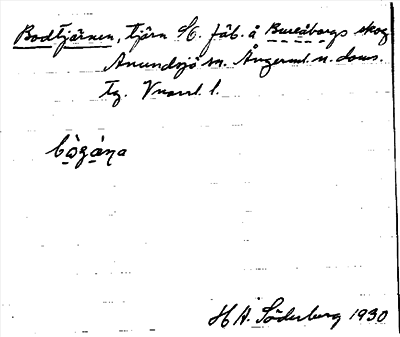 Bodtjärnen, tjärn S/O. fäb. å Bureåborgs skog
Anundsjö sn. Ångerml. n. doms.
Tg.
bo̱ga̱ŋa
H. A. Söderberg 1930